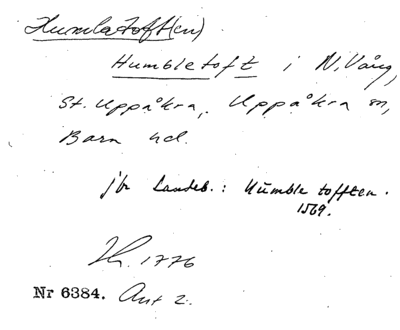 Humlatoft(en)
Humbletoft i N. Vång,
St. Uppåkra, Uppåkra sn,
Bara hd.
jfr Landeb.: Humble tofften.
1569.
1776
Nr 6384. Ant 2.